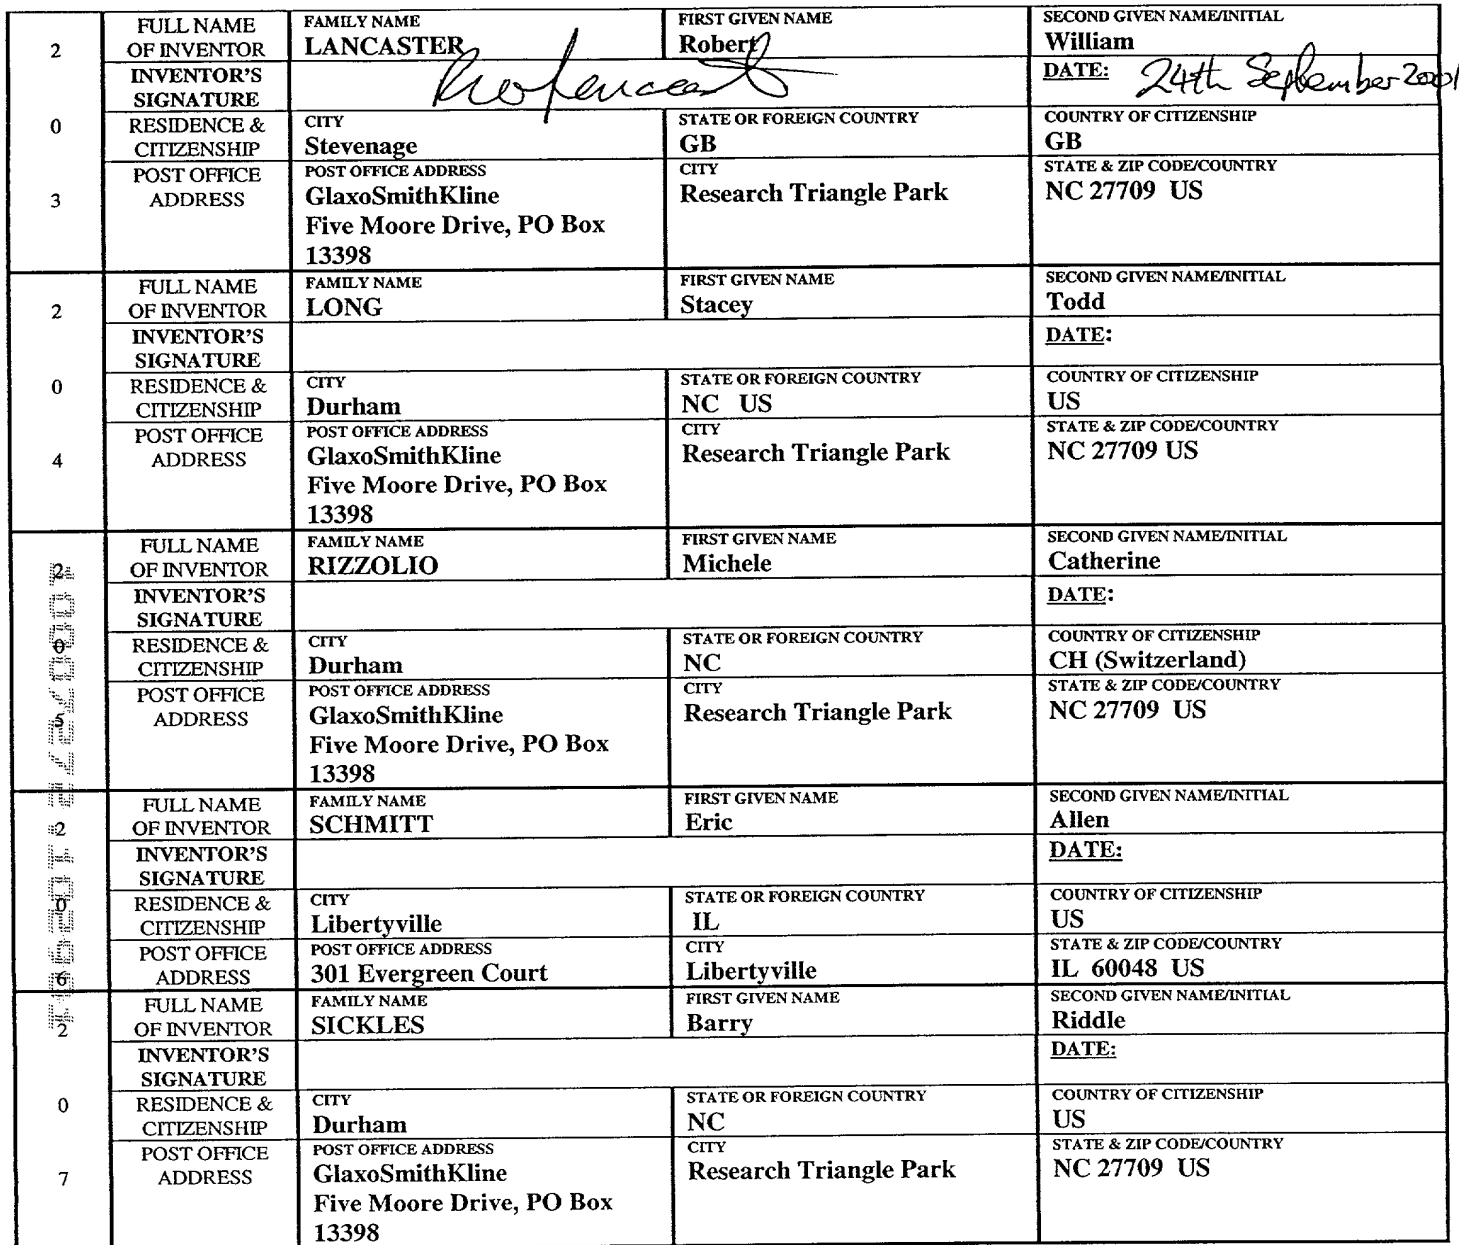 2 FULL NAME OF INVENTOR FAMILY NAME LANCASTER FIRST GIVEN NAME Robert SECOND GIVEN NAME/INITIAL William
INVENTOR'S SIGNATURE DATE: 24th September 2001
0 RESIDENCE & CITIZENSHIP CITY Stevenage STATE OR FOREIGN COUNTRY GB COUNTRY OF CITIZENSHIP GB
3 POST OFFICE ADDRESS POST OFFICE ADDRESS GlaxoSmithKline Five Moore Drive, PO Box 13398 CITY Research Triangle Park STATE & ZIP CODE/COUNTRY NC 27709 US
2 FULL NAME OF INVENTOR FAMILY NAME LONG FIRST GIVEN NAME Stacey SECOND GIVEN NAME/INITIAL Todd
INVENTOR'S SIGNATURE DATE:
0 RESIDENCE & CITIZENSHIP CITY Durham STATE OR FOREIGN COUNTRY NC US COUNTRY OF CITIZENSHIP US
4 POST OFFICE ADDRESS POST OFFICE ADDRESS GlaxoSmithKline Five Moore Drive, PO Box 13398 CITY Research Triangle Park STATE & ZIP CODE/COUNTRY NC 27709 US
2 FULL NAME OF INVENTOR FAMILY NAME RIZZOLIO FIRST GIVEN NAME Michele SECOND GIVEN NAME/INITIAL Catherine
INVENTOR'S SIGNATURE DATE:
0 RESIDENCE & CITIZENSHIP CITY Durham STATE OR FOREIGN COUNTRY NC COUNTRY OF CITIZENSHIP CH (Switzerland)
5 POST OFFICE ADDRESS POST OFFICE ADDRESS GlaxoSmithKline Five Moore Drive, PO Box 13398 CITY Research Triangle Park STATE & ZIP CODE/COUNTRY NC 27709 US
2 FULL NAME OF INVENTOR FAMILY NAME SCHMITT FIRST GIVEN NAME Eric SECOND GIVEN NAME/INITIAL Allen
INVENTOR'S SIGNATURE DATE:
0 RESIDENCE & CITIZENSHIP CITY Libertyville STATE OR FOREIGN COUNTRY IL COUNTRY OF CITIZENSHIP US
6 POST OFFICE ADDRESS POST OFFICE ADDRESS 301 Evergreen Court CITY Libertyville STATE & ZIP CODE/COUNTRY IL 60048 US
2 FULL NAME OF INVENTOR FAMILY NAME SICKLES FIRST GIVEN NAME Barry SECOND GIVEN NAME/INITIAL Riddle
INVENTOR'S SIGNATURE DATE:
0 RESIDENCE & CITIZENSHIP CITY Durham STATE OR FOREIGN COUNTRY NC COUNTRY OF CITIZENSHIP US
7 POST OFFICE ADDRESS POST OFFICE ADDRESS GlaxoSmithKline Five Moore Drive, PO Box 13398 CITY Research Triangle Park STATE & ZIP CODE/COUNTRY NC 27709 US